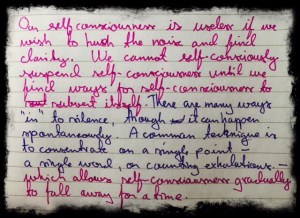 Our self consciousness is useless if we
wish to hush the noise and find
clarity. We cannot self-consciously
suspend self-consciousness until we
find ways for self-consciousness to
subvert itself. There are many ways
"in" to silence, though it can happen
spontaneously. A common technique is
to concentrate on a single point –
a single word, or counting exhalations –
which allows self-consciousness gradually
to fall away for a time.